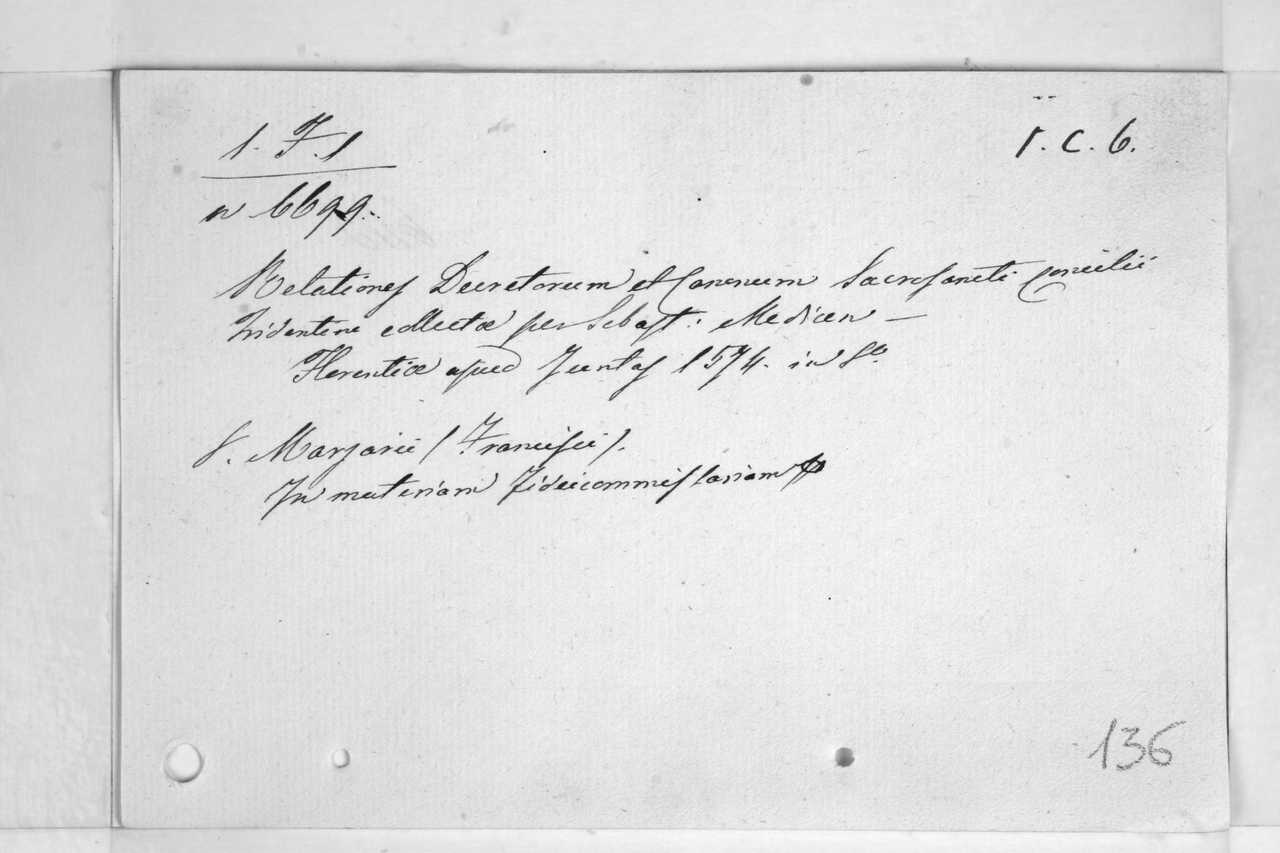 1. F. 1
I. C. 6.
n 6699.
Relationes Decretorum et Canonum Sacrosancti Concilii
Tridentini collectæ per Sebast: Medicen –
Florentiæ apud Juntas 1574. in 8º
S. Marzarii (Francisci).
In materiam Fideicommissariam
136